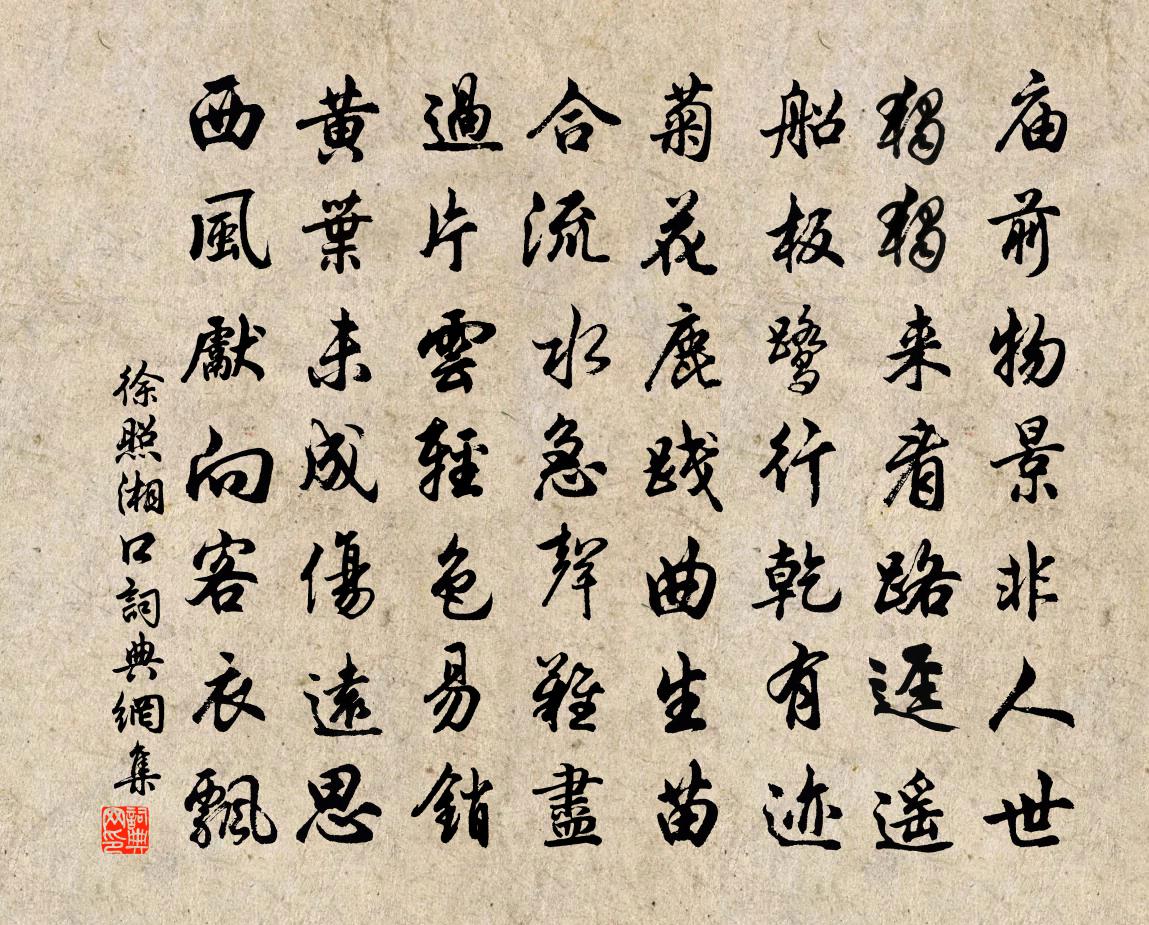 庙前物景非人世
獨獨来看路逕遥
船板鹭行乾有迹
菊花鹿践曲生苗
合流水急聲難盡
過片雲輕色易銷
黄葉未成傷遠思
西風獻向客衣飄
徐照湘口詞典網集
詞典网印